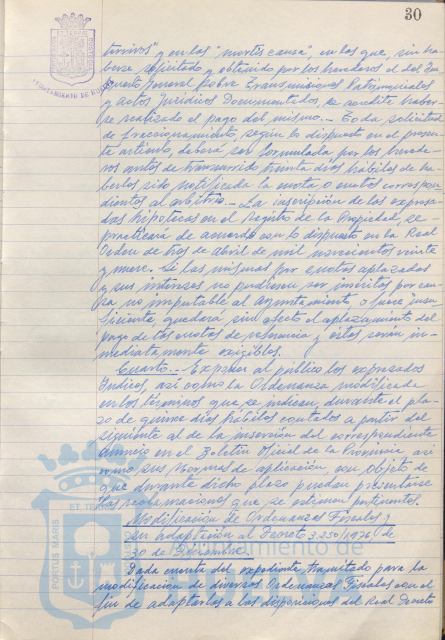 30
tervivos" y en las "mortis causa" en los que, sin ha-
berse solicitado y obtenido por los herederos el del Im-
puesto General sobre Transmisiones Patrimoniales
y Actos Jurídicos Documentados, se acredite haber-
se realizado el pago del mismo.- Toda solicitud
de fraccionamiento, según lo dispuesto en el presen-
te artículo, deberá ser formulada por los herede-
ros antes de transcurrido treinta días hábiles de ha-
berles sido notificada la cuota o cuotas correspon-
dientes al arbitrio.- La inscripción de las expresa-
das hipotecas en el Registro de la Propiedad, se
practicará de acuerdo con lo dispuesto en la Real
Orden de tres de abril de mil novecientos veinte
y nueve. Si las mismas por cuotas aplazadas
y sus intereses no pudieran ser inscritas por cau-
sa no imputable al ayuntamiento o fuere insu-
ficiente, quedará sin efecto el aplazamiento del
pago de las cuotas de referencia y éstas serán in-
mediatamente exigibles.
Cuarto.- Exponer al público los expresados
Indices, así como la Ordenanza modificada
en los términos que se indican, durante el pla-
zo de quince días hábiles contados a partir del
siguiente al de la inserción del correspondiente
anuncio en el Boletín Oficial de la Provincia, así
como sus normas de aplicación, con objeto de
que durante dicho plazo puedan presentarse
las reclamaciones que se estimen pertinentes.
Modificación de Ordenanzas Fiscales y
su adaptación al Decreto 3.250/1976 de
30 de Diciembre.
Dada cuenta del expediente tramitado para la
modificación de diversas Ordenanzas Fiscales con el
fin de adaptarlas a las disposiciones del Real Decreto
PORTUS MARIS
Ayuntamiento de